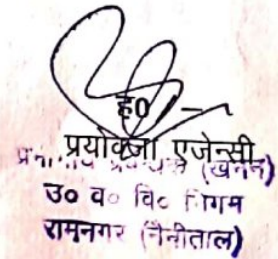 ह0/-
प्रयोक्ता एजेन्सी
(खनन)
उ० व० वि० निगम
रामनगर (नैनीताल)